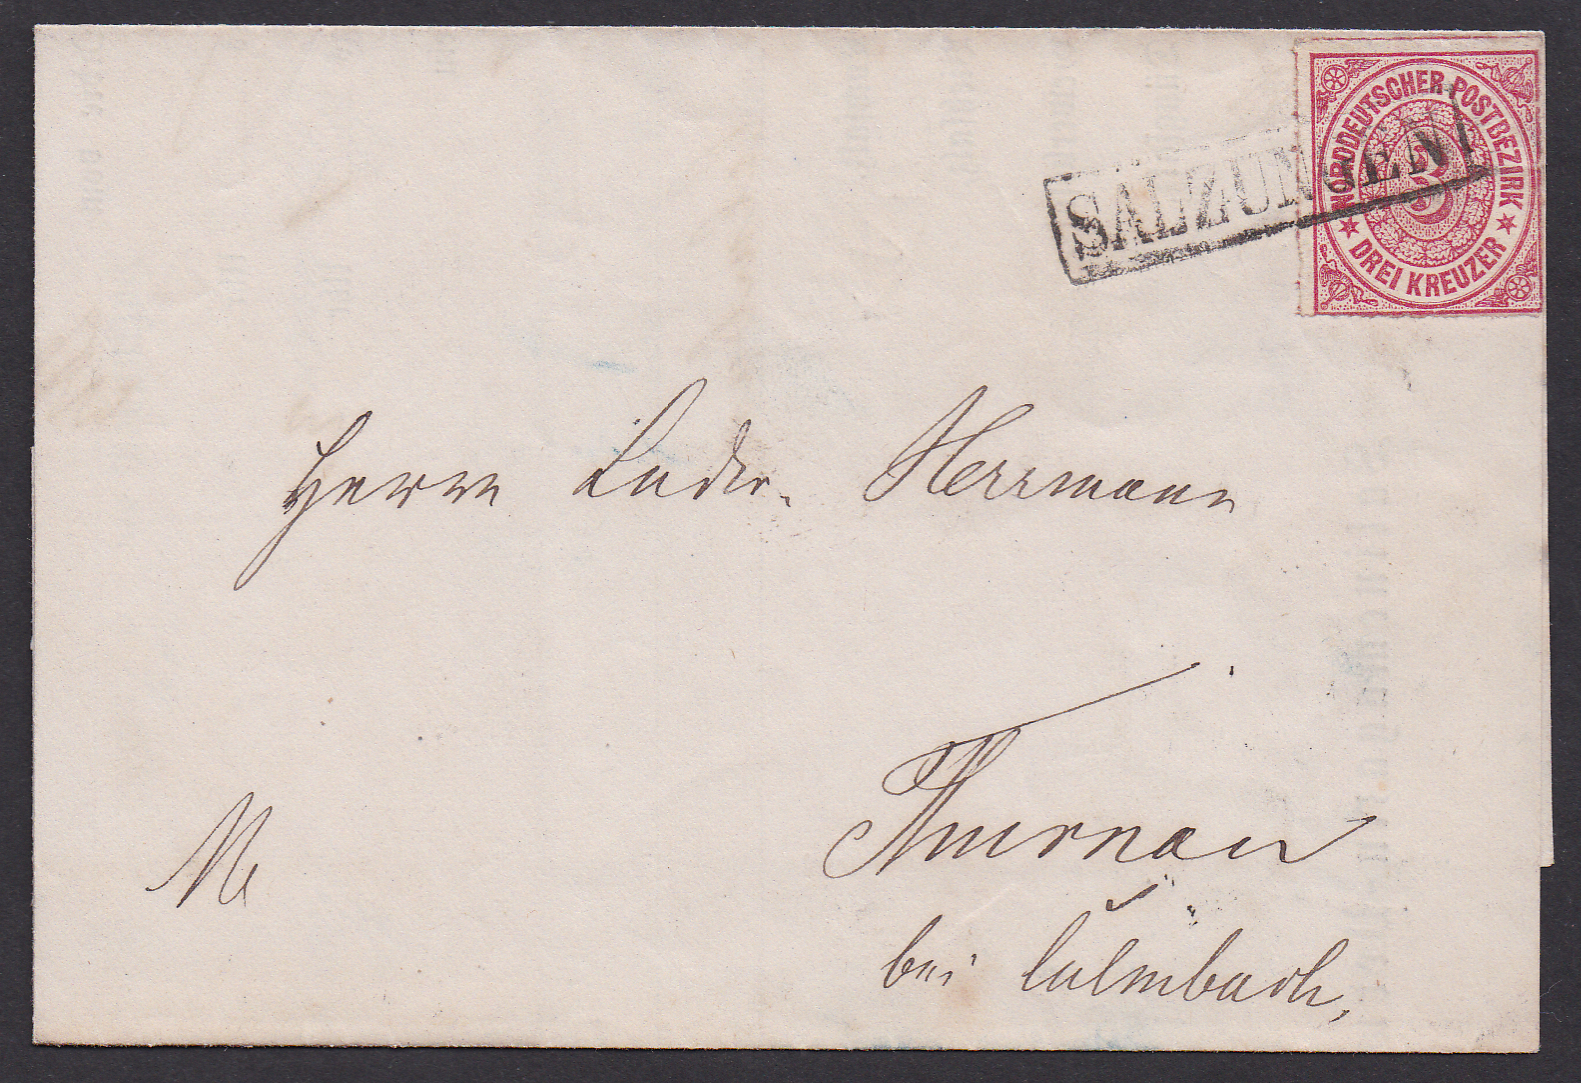 NORDDEUTSCHER POSTBEZIRK
3
DREI KREUZER
SALZUNGEN
Herrn Herrmann
Thurnau
bei Culmbach,